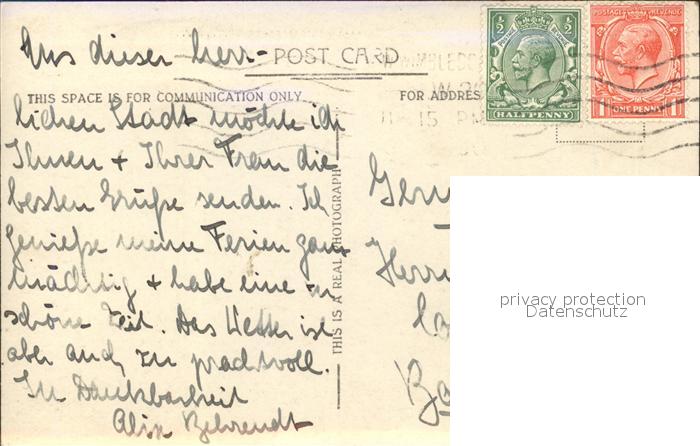 Aus dieser herr-
POST CARD
½ ½
HALFPENNY
POSTAGE REVENUE
1 ONE PENNY 1
THIS SPACE IS FOR COMMUNICATION ONLY
FOR ADDRES
11 15 PM
lichen Stadt möchte ich
Ihnen + Ihrer Frau die
besten Grüße senden. Ich
genieße meine Ferien ganz
mächtig + habe eine
schöne Zeit. Das Wetter ist
aber auch zu prachtvoll.
In Dankbarkeit
Alix Behrendt
THIS IS A REAL PHOTOGRAPH
Germ
Herrn
Ba
privacy protection
Datenschutz